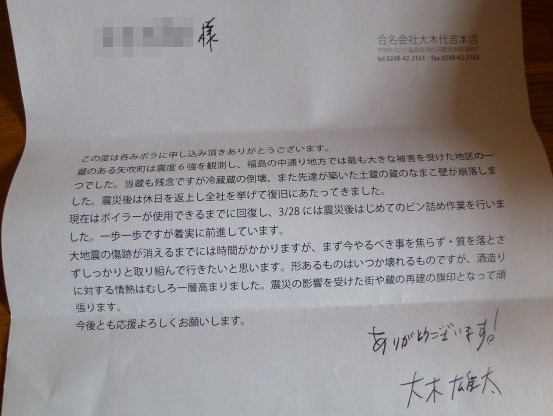 様
合名会社大木代吉本店
tel.0248-42-2161 fax 0248-42-2162
この度は呑みボラに申し込み頂きありがとうございます。
蔵のある矢吹町は震度6強を観測し、福島の中通り地方では最も大きな被害を受けた地区の一
つでした。当蔵も残念ですが冷蔵蔵の倒壊、また先達が築いた土蔵の蔵のなまこ壁が崩落しま
した。震災後は休日を返上し全社を挙げて復旧にあたってきました。
現在はボイラーが使用できるまでに回復し、3/28には震災後はじめてのビン詰め作業を行いま
した。一歩一歩ですが着実に前進しています。
大地震の傷跡が消えるまでには時間がかかりますが、まず今やるべき事を焦らず・質を落とさ
ずしっかりと取り組んで行きたいと思います。形あるものはいつか壊れるものですが、酒造り
に対する情熱はむしろ一層高まりました。震災の影響を受けた街や蔵の再建の旗印となって頑
張ります。
今後とも応援よろしくお願いします。
ありがとうございます!
大木雄太